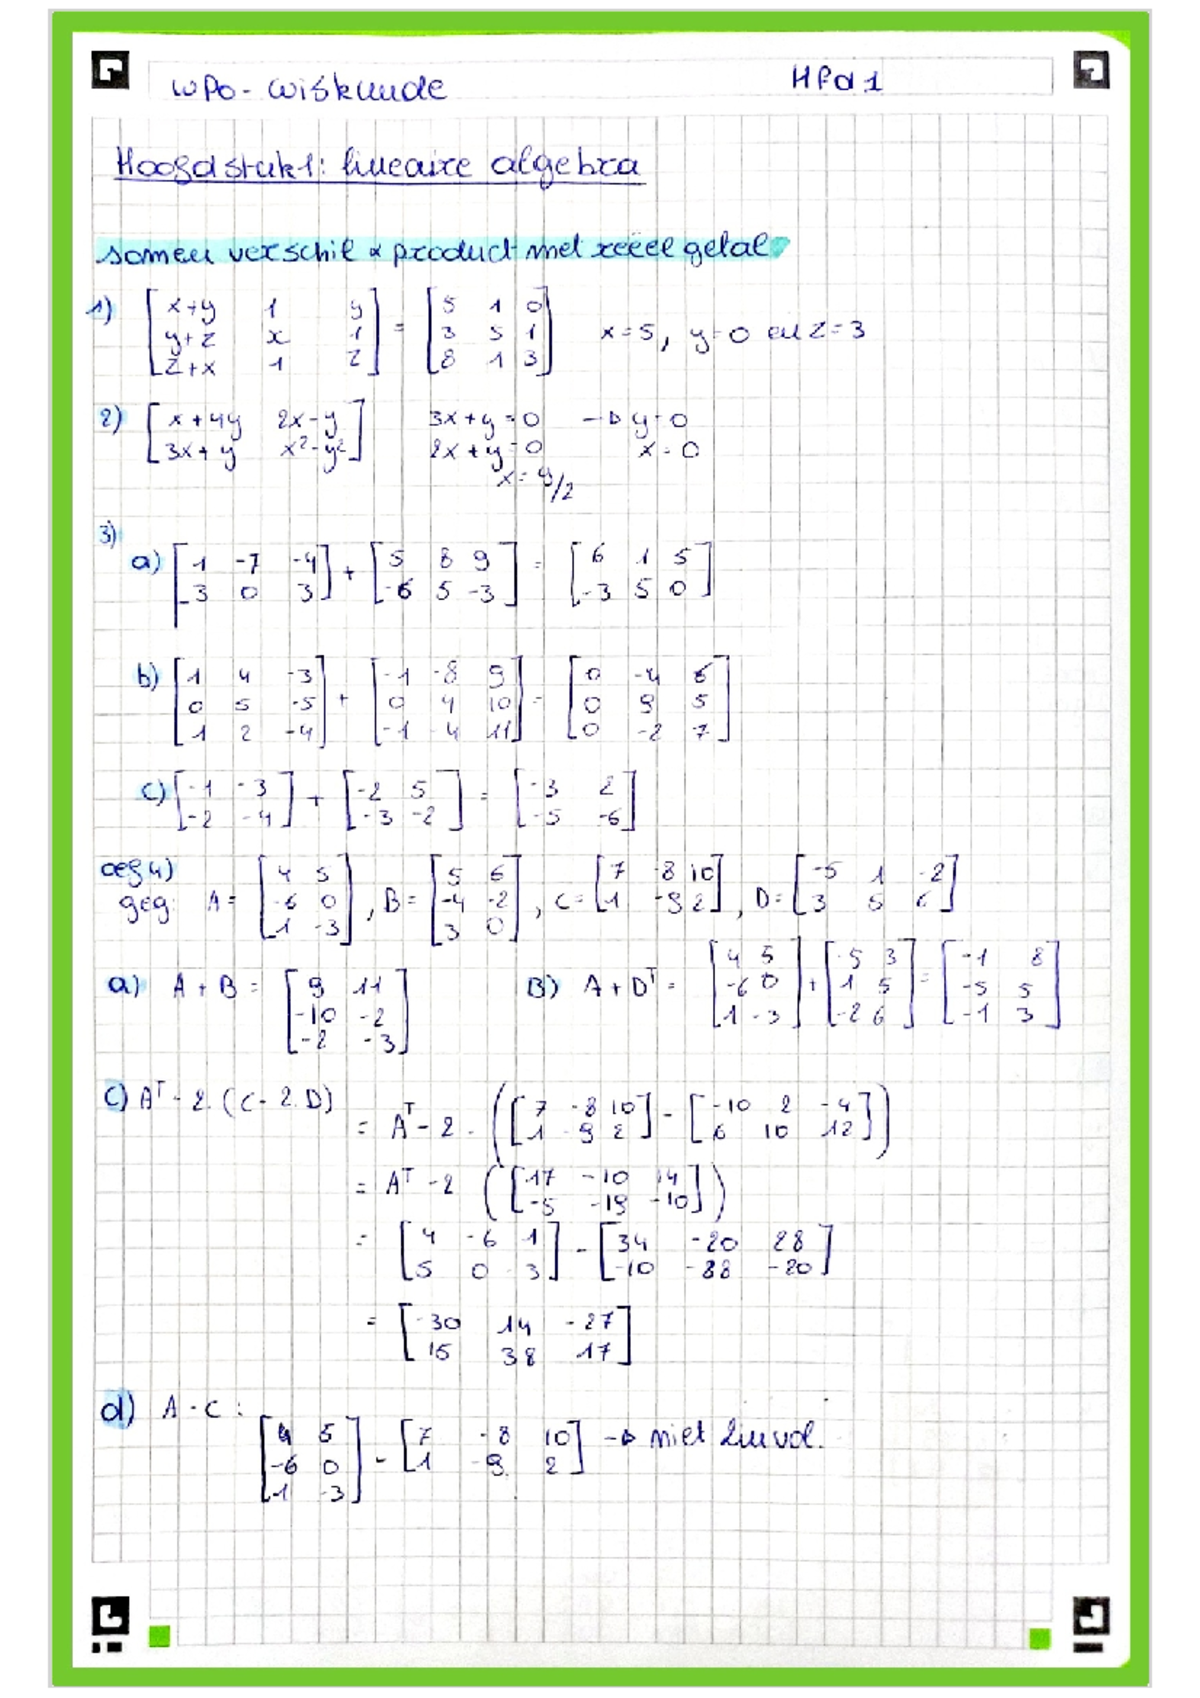 WPO - wiskunde HFd 1
Hoofdstuk 1: lineaire algebra
somen verschil & product met reëel getal
1) [x+y 1 y; y+z x 1; z+x 1 z] = [5 1 0; 3 5 1; 8 1 3] x=5, y=0 en z=3
2) [x+4y 2x-y; 3x+y x²-y²] 3x+y=0 → y=0
2x+y=0 x=0
x=y/2
3)
a) [1 -7 -4; -3 0 3] + [5 8 9; -6 5 -3] = [6 1 5; -3 5 0]
b) [1 4 -3; 0 5 -5; 1 2 -4] + [-1 -8 9; 0 4 10; -1 -4 11] = [0 -4 6; 0 9 5; 0 -2 7]
c) [-1 -3; -2 -4] + [-2 5; -3 -2] = [-3 2; -5 -6]
oef 4)
geg: A= [4 5; -6 0; 1 -3], B= [5 6; -4 -2; 3 0], C= [7 -8 10; 1 -9 2], D= [-5 1 -2; 3 5 6]
a) A + B = [9 11; -10 -2; -2 -3] B) A + Dᵀ = [4 5; -6 0; 1 -3] + [-5 3; 1 5; -2 6] = [-1 8; -5 5; -1 3]
C) Aᵀ - 2.(C - 2.D) = Aᵀ - 2 . ([7 -8 10; 1 -9 2] - [-10 2 -4; 6 10 12])
= Aᵀ - 2 ([17 -10 14; -5 -19 -10])
= [4 -6 1; 5 0 -3] - [34 -20 28; -10 -38 -20]
= [-30 14 -27; 15 38 17]
d) A - C :
[4 5; -6 0; 1 -3] - [7 -8 10; 1 -9 2] → niet zinvol.